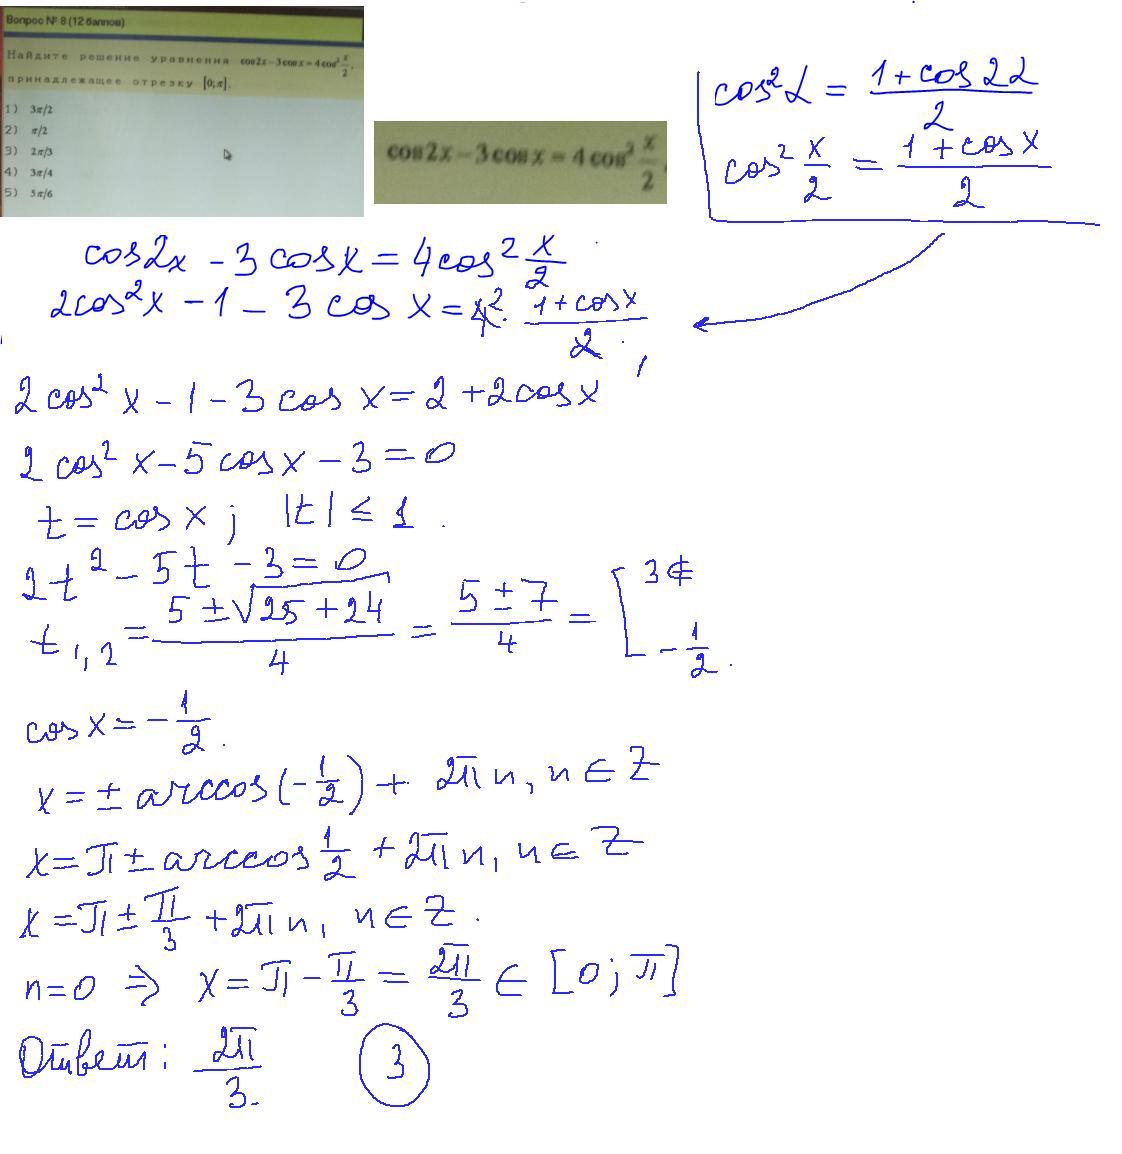 Вопрос № 8 (12 баллов)
Найдите решение уравнения cos2x−3cosx=4cos² x/2,
принадлежащее отрезку [0;π].
1) 3π/2
2) π/2
3) 2π/3
4) 3π/4
5) 5π/6
cos2x − 3cosx = 4cos² x/2,
cos²α = (1+cos2α)/2
cos² x/2 = (1+cosx)/2
cos2x − 3cosx = 4cos² x/2
2cos²x − 1 − 3cosx = 4² · (1+cosx)/2,
2cos²x − 1 − 3cosx = 2 + 2cosx
2cos²x − 5cosx − 3 = 0
t = cosx; |t| ≤ 1.
2t² − 5t − 3 = 0
t₁,₂ = (5 ± √(25+24))/4 = (5 ± 7)/4 = [ 3 ∉
−1/2.
cosx = −1/2.
x = ± arccos(−1/2) + 2πn, n ∈ Z
x = π ± arccos 1/2 + 2πn, n ∈ Z
x = π ± π/3 + 2πn, n ∈ Z.
n=0 ⇒ x = π − π/3 = 2π/3 ∈ [0; π]
Ответ: 2π/3. 3